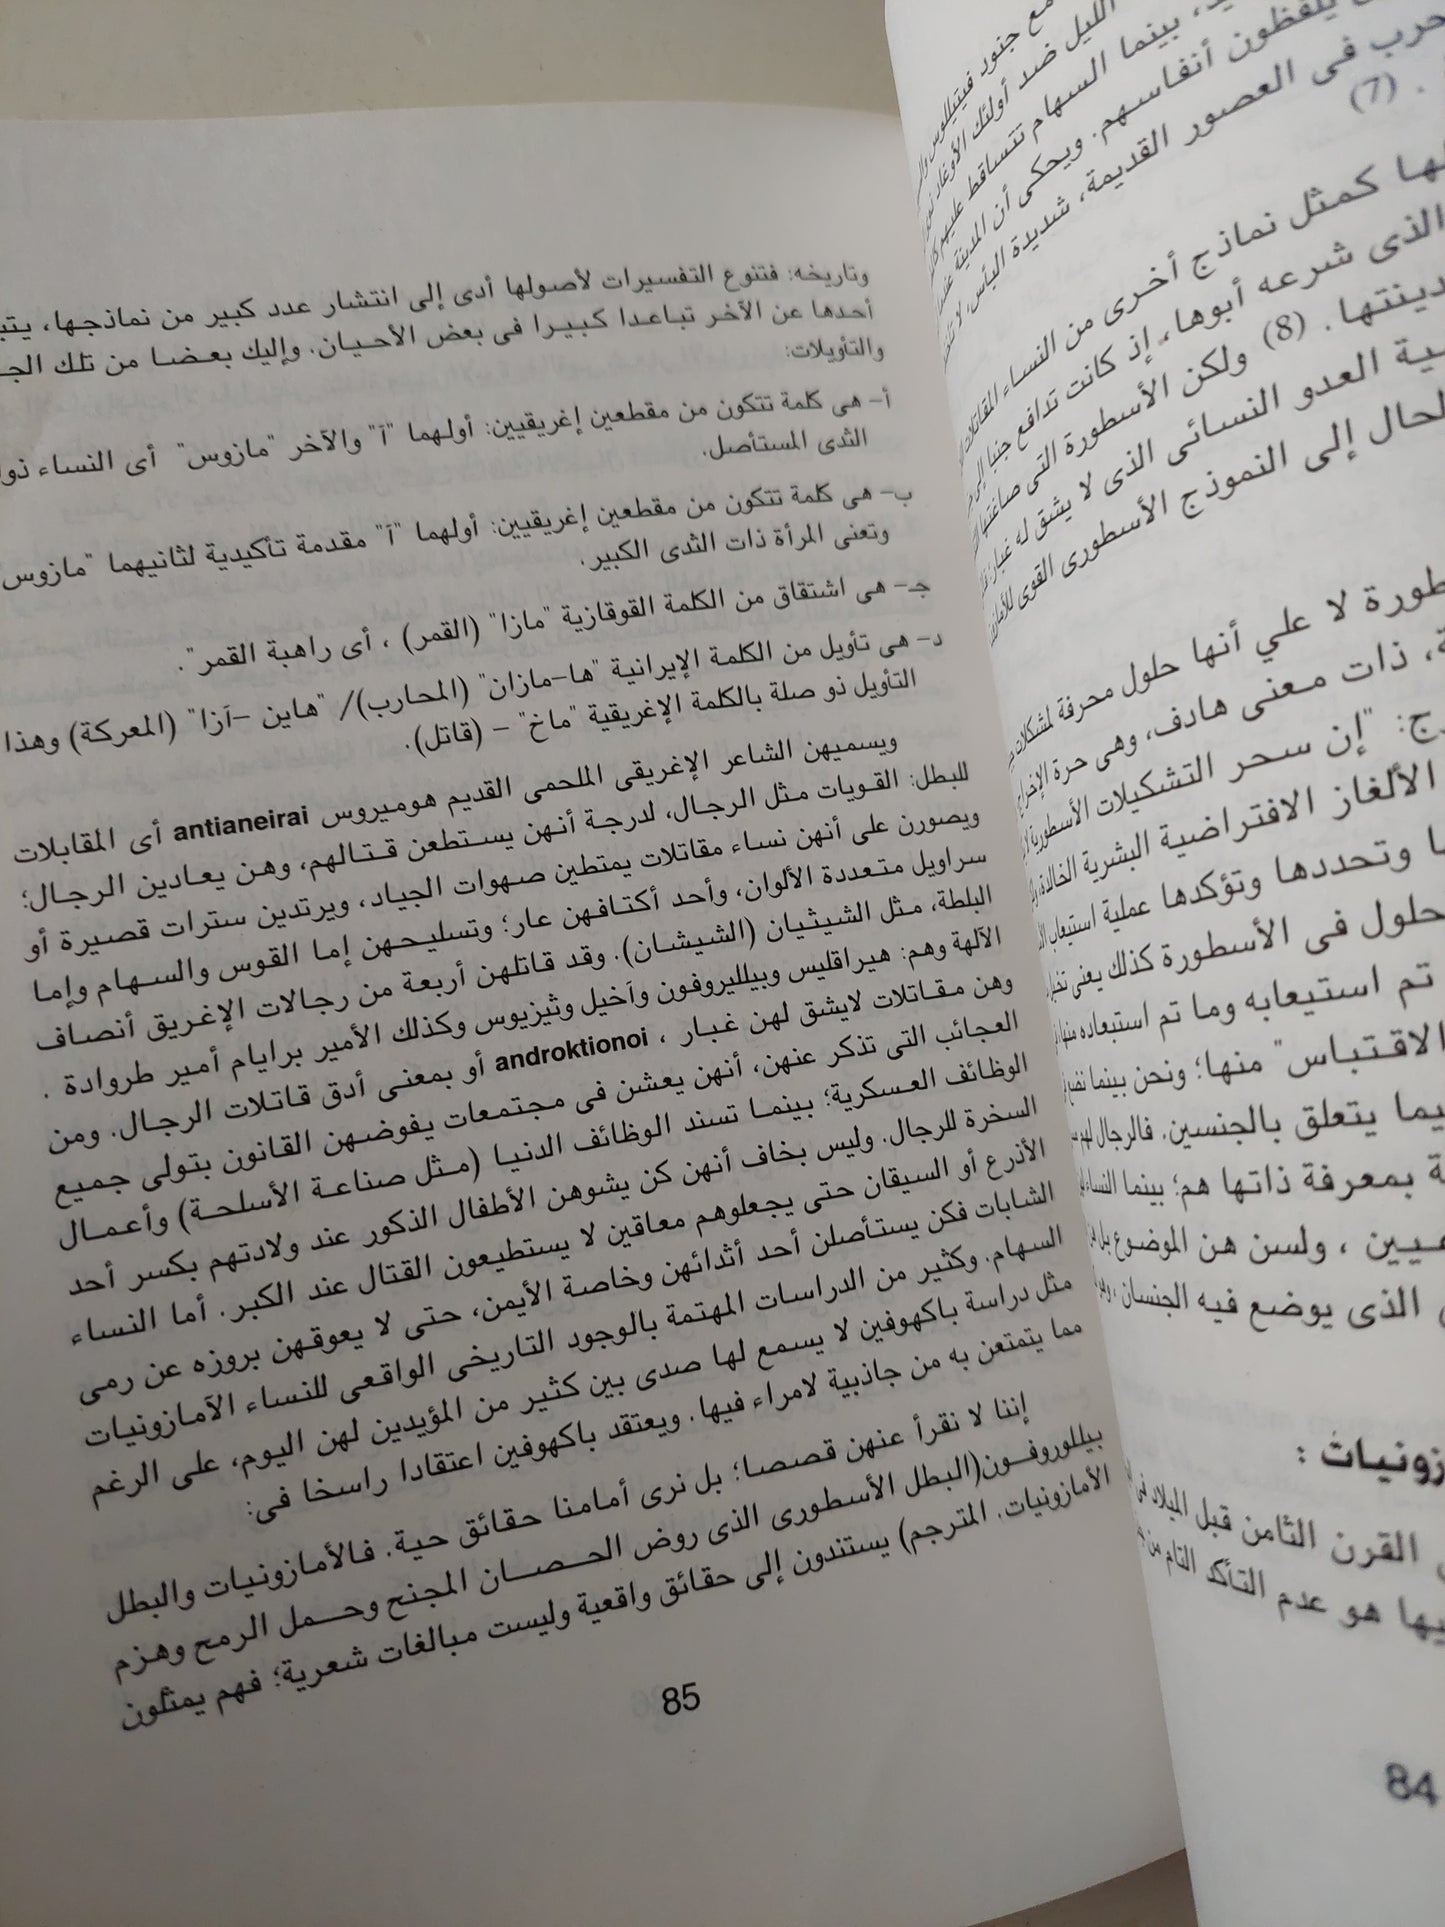 مع جنود فيتيللوس
الليل ضد أولئك الأوغاد
بينما السهام تتساقط عليهم
يلفظون أنفاسهم. ويحكى أن المدينة
حرب فى العصور القديمة، شديدة البأس،
. (7)
لها كمثل نماذج أخرى من النساء المقاتلات
الذى شرعه أبوها، إذ كانت تدافع جنبا إلى
دينتها. (8) ولكن الأسطورة التى صاغتها
العدو النسائى الذى لا يشق له غبار؛
الحال إلى النموذج الأسطورى القوى للأمازونيات
لا علي أنها حلول محرفة لمشكلات
ذات معنى هادف، وهى حرة الإخراج
"إن سحر التشكيلات الأسطورية
الألغاز الافتراضية البشرية الخالدة،
وتحددها وتؤكدها عملية استيعاب
حلول فى الأسطورة كذلك يعنى
تم استيعابه وما تم استبعاده منها
الاقتباس" منها؛ ونحن بينما
يتعلق بالجنسين. فالرجال لهم
بمعرفة ذاتها هم؛ بينما النساء
، ولسن هن الموضوع بل
الذى يوضع فيه الجنسان ،
:
القرن الثامن قبل الميلاد فى
هو عدم التأكد التام من
84
وتاريخه: فتنوع التفسيرات لأصولها أدى إلى انتشار عدد كبير من نماذجها،
أحدها عن الآخر تباعدا كبيرا فى بعض الأحيان. وإليك بعضا من تلك
والتأويلات:
أ– هى كلمة تتكون من مقطعين إغريقيين: أولهما "آ" والآخر "مازوس" أى النساء
الثدى المستأصل.
ب– هى كلمة تتكون من مقطعين إغريقيين: أولهما "آ" مقدمة تأكيدية لثانيهما "مازوس"
وتعنى المرأة ذات الثدى الكبير.
جـ– هى اشتقاق من الكلمة القوقازية "مازا" (القمر) ، أى راهبة القمر".
د– هى تأويل من الكلمة الإيرانية "ها–مازان" (المحارب)/ "هاين –آزا" (المعركة) وهذا
التأويل ذو صلة بالكلمة الإغريقية "ماخ" – (قاتل).
ويسميهن الشاعر الإغريقى الملحمى القديم هوميروس antianeirai أى المقابلات
للبطل: القويات مثل الرجال، لدرجة أنهن يستطعن قتالهم، وهن يعادين الرجال؛
ويصورن على أنهن نساء مقاتلات يمتطين صهوات الجياد، ويرتدين سترات قصيرة أو
سراويل متعددة الألوان، وأحد أكتافهن عار؛ وتسليحهن إما القوس والسهام وإما
البلطة، مثل الشيثيان (الشيشان). وقد قاتلهن أربعة من رجالات الإغريق أنصاف
الآلهة وهم: هيراقليس وبيلليروفون وآخيل وثيزيوس وكذلك الأمير برايام أمير طروادة .
وهن مقاتلات لايشق لهن غبار ، androktionoi أو بمعنى أدق قاتلات الرجال. ومن
العجائب التى تذكر عنهن، أنهن يعشن فى مجتمعات يفوضهن القانون بتولى جميع
الوظائف العسكرية؛ بينما تسند الوظائف الدنيا (مثل صناعة الأسلحة) وأعمال
السخرة للرجال. وليس بخاف أنهن كن يشوهن الأطفال الذكور عند ولادتهم بكسر أحد
الأذرع أو السيقان حتى يجعلوهم معاقين لا يستطيعون القتال عند الكبر. أما النساء
الشابات فكن يستأصلن أحد أثدائهن وخاصة الأيمن، حتى لا يعوقهن بروزه عن رمى
السهام. وكثير من الدراسات المهتمة بالوجود التاريخى الواقعى للنساء الآمازونيات
مثل دراسة باكهوفين لا يسمع لها صدى بين كثير من المؤيدين لهن اليوم، على الرغم
مما يتمتعن به من جاذبية لامراء فيها. ويعتقد باكهوفين اعتقادا راسخا فى:
إننا لا نقرأ عنهن قصصا؛ بل نرى أمامنا حقائق حية. فالأمازونيات والبطل
بيللوروفون(البطل الأسطورى الذى روض الحصان المجنح وحمل الرمح وهزم
الأمازونيات. المترجم) يستندون إلى حقائق واقعية وليست مبالغات شعرية؛ فهم يمثلون
85